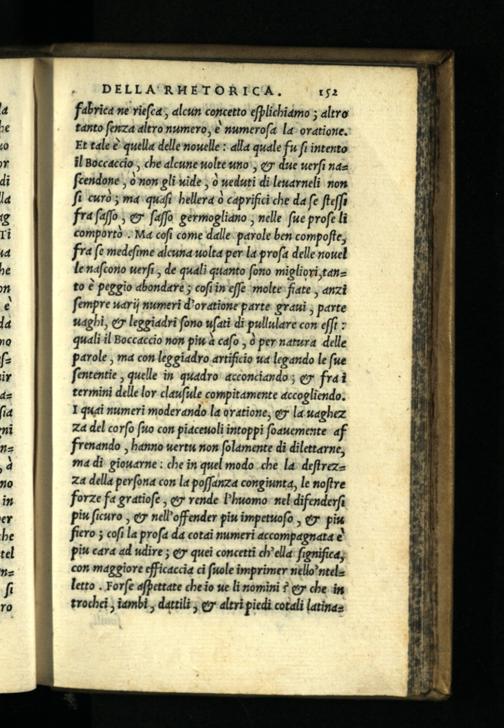 DELLA RHETORICA. 152
fabrica ne riesca, alcun concetto esplichiamo; altro
tanto senza altro numero, è numerosa la oratione.
Et tale è quella delle nouelle: alla quale fu si intento
il Boccaccio, che alcune volte uno, & due uersi na=
scendone, ò non gli uide, ò veduti di leuarneli non
si curò; ma quasi hellera ò caprifici che da se stessi
fra sasso, & sasso germogliano, nelle sue prose li
comportò. Ma cosi come dalle parole ben composte,
fra se medesime alcuna uolta per la prosa delle nouel
le nascono uersi, de quali quanto sono migliori, tan=
to è peggio abondare; cosi in esse molte fiate, anzi
sempre uarij numeri d'oratione parte graui, parte
uaghi, & leggiadri sono usati di pullulare con essi:
quali il Boccaccio non piu à caso, ò per natura delle
parole, ma con leggiadro artificio ua legando le sue
sententie, quelle in quadro acconciando; & fra i
termini delle lor clausule compitamente accogliendo.
I quai numeri moderando la oratione, & la uaghez
za del corso suo con piaceuoli intoppi soauemente af
frenando, hanno uertu non solamente di dilettarne,
ma di giouarne: che in quel modo che la destrez=
za della persona con la possanza congiunta, le nostre
forze fa gratiose, & rende l'huomo nel difendersi
piu sicuro, & nell'offender piu impetuoso, & piu
fiero; cosi la prosa da cotai numeri accompagnata è
piu cara ad udire; & quei concetti ch'ella significa,
con maggiore efficaccia ci suole imprimer nello'ntel=
letto. Forse aspettate che io ue li nomini? & che in
trochei, iambi, dattili, & altri piedi cotali latina=